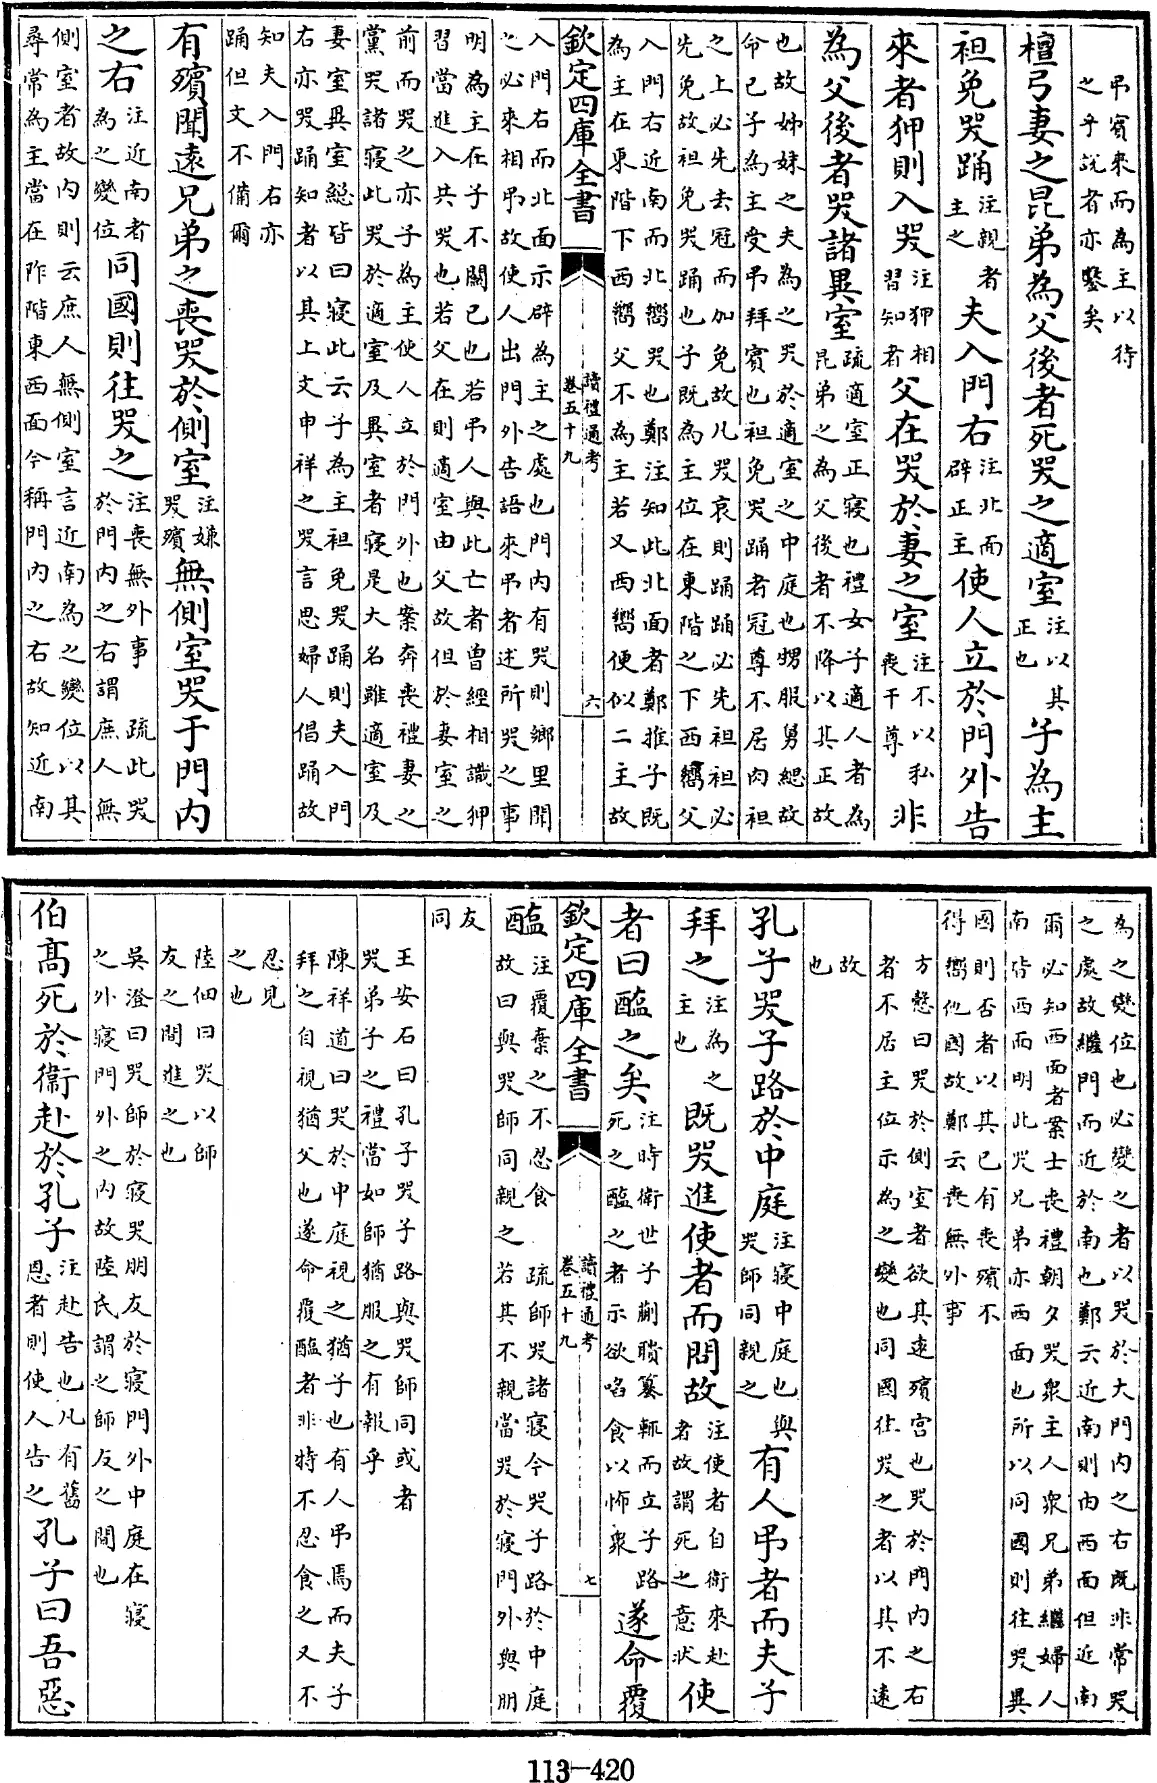 弔賓來而為主以待
之乎說者亦鑿矣
檀弓妻之昆弟為父後者死哭之適室注以其正也子為主
袒免哭踊注親者主之夫入門右注北面辟正主使人立於門外告
來者狎則入哭注狎相習知者父在哭於妻之室注不以私喪干尊非
為父後者哭諸異室疏適室正寢也禮女子適人者為昆弟之為父後者不降以其正故
也故姊妹之夫為之哭於適室之中庭也甥服舅緦故
命己子為主受弔拜賓也袒免哭踊者冠尊不居肉袒
之上必先去冠而加免故凡哭哀則踊踊必先袒袒必
先免故袒免哭踊也子既為主位在東階之下西嚮父
入門右近南而北嚮哭也鄭注知此北面者鄭推子既
為主在東階下西嚮父不為主若又西嚮便似二主故
欽定四庫全書 讀禮通考卷五十九 六
入門右而北面示辟為主之處也門内有哭則鄉里聞
之必來相弔故使人出門外告語來弔者述所哭之事
明為主在子不關己也若弔人與此亡者曾經相識狎
習當進入共哭也若父在則適室由父故但於妻室之
前而哭之亦子為主使人立於門外也案奔喪禮妻之
黨哭諸寢此哭於適室及異室者寢是大名雖適室及
妻室異室總皆曰寢此云子為主袒免哭踊則夫入門
右亦哭踊知者以其上文申祥之哭言思婦人倡踊故
知夫入門右亦
踊但文不備爾
有殯聞遠兄弟之喪哭於側室注嫌哭殯無側室哭于門内
之右注近南者為之變位同國則往哭之注喪無外事 疏此哭於門内之右謂庶人無
側室者故内則云庶人無側室言近南為之變位以其
尋常為主當在阼階東西面今稱門内之右故知近南
為之變位也必變之者以哭於大門内之右既非常哭
之處故繼門而近於南也鄭云近南則内西面但近南
爾必知西面者案士喪禮朝夕哭衆主人衆兄弟繼婦人
南皆西面明此哭兄弟亦西面也所以同國則往哭異
國則否者以其已有喪殯不
得嚮他國故鄭云喪無外事
方慤曰哭於側室者欲其遠殯宫也哭於門内之右
者不居主位示為之變也同國往哭之者以其不遠
故
也
孔子哭子路於中庭注寢中庭也與哭師同親之有人弔者而夫子
拜之注為之主也既哭進使者而問故注使者自衛來赴者故謂死之意狀使
者曰醢之矣注時衛世子蒯聵簒輒而立子路死之醢之者示欲啗食以怖衆遂命覆
醢注覆棄之不忍食 疏師哭諸寢今哭子路於中庭故曰與哭師同親之若其不親當哭於寢門外與朋
欽定四庫全書 讀禮通考卷五十九 七
友
同
王安石曰孔子哭子路與哭師同或者
哭弟子之禮當如師猶服之有報乎
陳祥道曰哭於中庭視之猶子也有人弔焉而夫子
拜之自視猶父也遂命覆醢者非特不忍食之又不
忍見
之也
陸佃曰哭以師
友之間進之也
吳澄曰哭師於寢哭朋友於寢門外中庭在寢
之外寢門外之内故陸氏謂之師友之間也
伯高死於衞赴於孔子注赴告也凡有舊恩者則使人告之孔子曰吾惡
113-420